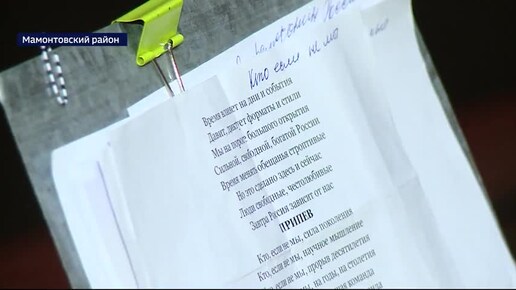 Мамонтовский район
Кто если не мы
Время влияет на дни и события
Давит, диктует форматы и стили
Мы на пороге большого открытия
Сильной, свободной, богатой России
Время менять обещанья строптивые
Но это сделано здесь и сейчас
Люди свободные, честолюбивые
Завтра Россия зависит от нас
ПРИПЕВ
Кто, если не мы, сила поколения
Кто, если не мы, научное мышление
Кто, если не мы, прорыв десятилетия
мы, на годы, на столетия
команда